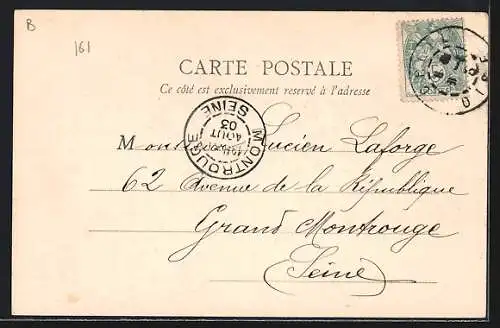 B
161
CARTE POSTALE
Ce côté est exclusivement reservé à l'adresse
MONTROUGE
AOUT
03
SEINE
Monsieur Lucien Laforge
62 Avenue de la République
Grand Montrouge
(Seine)